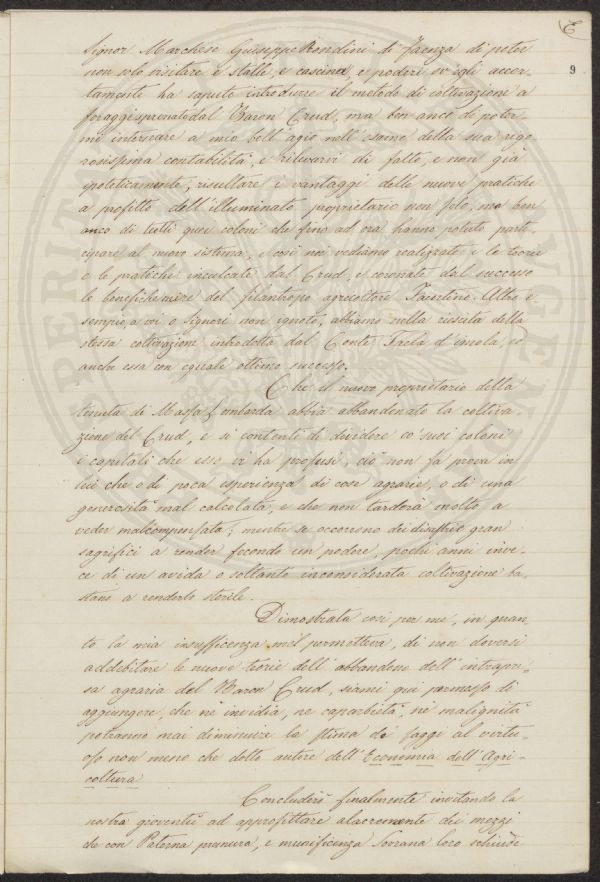 E
9
Signor Marchese Giuseppe Rondini di Faenza di poter
non solo visitare e stalle, e cascina, e poderi ov'egli accor-
tamente ha saputo introdurre il metodo di coltivazione a
foraggi prenato dal Baron Crud, ma ben anco di poter-
mi internare a mio bell'agio nell'esame della sua rigo-
rosissima contabilità, e rilevarvi di fatto, e non già
ipoteticamente, risultare i vantaggi delle nuove pratiche
a profitto dell'illuminato proprietario non solo, ma ben
anco di tutti quei coloni che fino ad ora hanno potuto parte-
cipare al nuovo sistema, e così noi vediamo realizzate e le teorie
e le pratiche inculcate dal Crud, e coronate dal successo
le benefiche mire del filantropo agricoltore Faentino. Altro e-
sempio, a voi o Signori non ignoto, abbiamo nella riescita della
stessa coltivazione introdotta dal Conte Faella d'Imola, ed
anche essa con eguale ottimo successo.
Che il nuovo proprietario della
tenuta di Massa Lombarda abbia abbandonato la coltiva-
zione del Crud, e si contenti di dividere co' suoi coloni
i capitali che esso vi ha profusi, ciò non fa prova in
lui che o di poca esperienza di cose agrarie, o di una
generosità mal calcolata, e che non tarderà molto a
veder malcompensata; mentre se occorrono dei gran
sagrifici a render fecondo un podere, pochi anni inve-
ce di un avida o soltanto inconsiderata coltivazione ba-
stano a renderlo sterile.
Dimostrata così per me, in quan-
to la mia insufficenza mel permetteva, di non doversi
addebitare le nuove teorie dell'abbandono dell'intrapre-
sa agraria del Baron Crud, siami qui permesso di
aggiungere, che nè invidia, nè caparbietà, nè malignità
potranno mai diminuire la stima de' saggi al virtu-
oso non meno che dotto autore dell'Economia dell'Agri-
coltura
Concluderò finalmente invitando la
nostra gioventù ad approfittare alacremente dei mezzi
che con Paterna premura, e munificenza Sovrana loro schiude